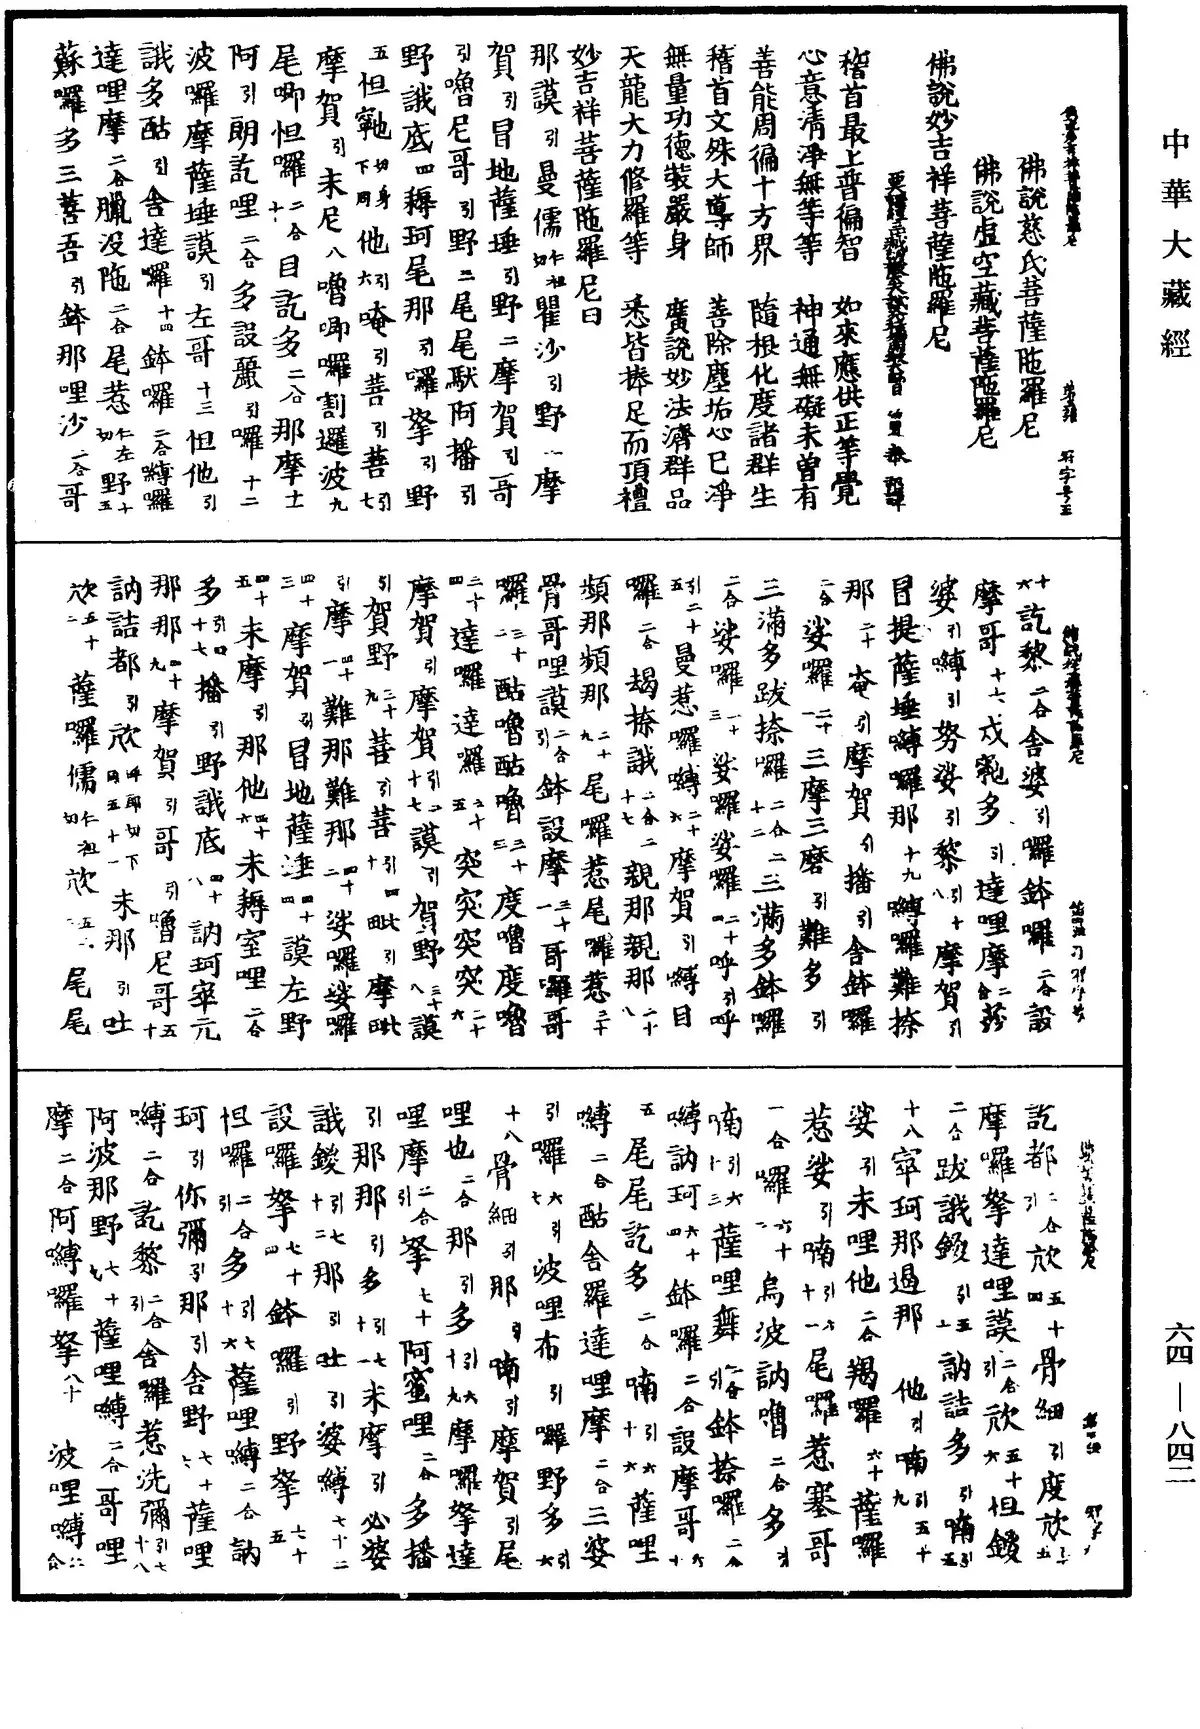 中華大藏經
佛說慈氏菩薩陁羅尼
佛說虛空藏菩薩陁羅尼
佛說妙吉祥菩薩陁羅尼
稽首最上普徧智　如來應供正等覺
心意清淨無等等　神通無礙未曾有
善能周徧十方界　隨根化度諸群生
稽首文殊大導師　善除塵垢心已淨
無量功德裝嚴身　廣說妙法濟群品
天龍大力修羅等　悉皆捧足而頂禮
妙吉祥菩薩陁羅尼曰
那謨引曼儒仁祖切瞿沙引野一摩
賀引冒地薩埵引野二摩賀引哥
引嚕尼哥引野三尾尾馱阿播引
野誐底四耨珂尾那引囉拏引野
五怛𩕳切身下同他引六唵引菩引菩引七
摩賀引末尼八嚕唧囉割邏波九
尾唧怛囉二合十目訖多二合那摩士
阿引朗訖哩二合多設麗引囉十二
波囉摩薩埵謨引左哥十三怛他引
誐多酤引舍達囉十四鉢囉二合嚩囉
達哩摩二合臘没陁二合尾惹仁左切野十五
蘇囉多三菩吾引鉢那哩沙二合哥
十六訖黎二合舍婆引囉鉢囉二合設
摩哥十七戍𩕳多引達哩摩二合莎
婆引嚩引努娑引黎引十八摩賀引
冒提薩埵嚩囉那十九嚩囉難捺
那二十唵引摩賀引播引舍鉢囉
二合娑囉二十一三摩三磨引難多引
三滿多跋捺囉二合二十二三滿多鉢囉
二合娑囉二十三娑囉娑囉二十四呼引呼
引二十五曼惹囉嚩二十六摩賀引嚩目
囉二合朅捺誐二合二十七親那親那二十八
頻那頻那二十九尾囉惹尾囉惹三十
骨哥哩謨二合引鉢設摩三十一哥囉哥
囉三十二酤嚕酤嚕三十三度嚕度嚕
三十四達囉達囉三十五突突突突三十六
摩賀引摩賀引三十七謨引賀野三十八謨
引賀野三十九菩引菩引四十毗引摩毗
引摩四十一難那難那四十二娑囉娑囉
四十三摩賀引冒地薩埵四十四謨左野
四十五末摩引那他四十六末耨室哩二合
多引四十七播引野誐底四十八訥珂宰元
那那四十九摩賀引哥引嚕尼哥五十
訥詰都引欣呼郎切下同五十一末那引吐
欣五十二薩囉儒仁祖切欣五十三尾尾
訖都二合引欣五十四骨細引度欣五十五
摩囉拏達哩謨二合引欣五十六怛鎖
二合跋誐鍐引五十七訥詰多引喃引五
十八宰珂那過那他引喃引五十九
娑引末哩他二合羯囉六十薩囉
惹娑引喃引六十一尾囉惹塞哥
二合囉六十二烏波訥嚕二合多引
喃引六十三薩哩舞二合引鉢捺囉二合
嚩訥珂六十四鉢囉二合設摩哥六十
五尾尾訖多二合喃引六十六薩哩
嚩二合酤舍羅達哩摩二合三婆
引囉六十七引波哩布引囉野多引六
十八骨細引那引喃引摩賀引尾
哩也二合那引多引六十九摩囉拏達
哩摩二合引拏七十阿蜜哩二合多播
引那那引多引七十一末摩引必婆
誐鍐引七十二那引吐引婆嚩七十三
設囉拏七十四鉢囉引野拏七十五
怛囉二合引多引七十六薩哩嚩二合訥
珂引你彌引那引舍野七十七薩哩
嚩二合訖黎二合引舍羅惹洗彌引七十八
阿波那野七十九薩哩嚩二合哥哩
摩二合阿嚩囉拏八十波哩嚩二合
六四—八四二